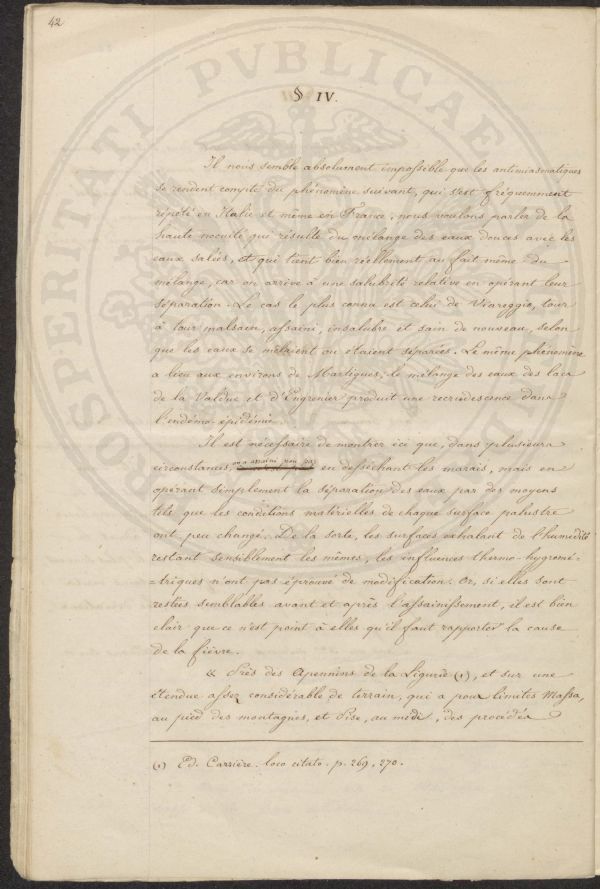 42
PROSPERITATI PVBLICAE
§ IV.
Il nous semble absolument impossible que les antimiasmatiques
se rendent compte du phénomène suivant, qui s'est fréquemment
répété en Italie et même en France; nous voulons parler de la
haute nocuité qui résulte du mélange des eaux douces avec les
eaux salées, et qui tient bien réellement au fait même du
mélange, car on arrive à une salubrité relative en opérant leur
séparation. Le cas le plus connu est celui de Viareggio, tour
à tour malsain, assaini, insalubre et sain de nouveau, selon
que les eaux se mêlaient ou étaient séparées. Le même phénomène
a lieu aux environs de Martigues, le mélange des eaux des lacs
de la Valduc et d'Engrenier produit une recrudescence dans
l'endémo-épidémie.
Il est nécessaire de montrer ici que, dans plusieurs
circonstances, on a assaini non pas en desséchant les marais, mais en
opérant simplement la séparation des eaux par des moyens
tels que les conditions matérielles de chaque surface palustre
ont peu changé. De la sorte, les surfaces exhalant de l'humidité
restant sensiblement les mêmes, les influences thermo-hygromé-
=triques n'ont pas éprouvé de modification. Or, si elles sont
restées semblables avant et après l'assainissement, il est bien
clair que ce n'est point à elles qu'il faut rapporter la cause
de la fièvre.
« Près des Apennins de la Ligurie (1), et sur une
étendue assez considérable de terrain, qui a pour limites Massa,
au pied des montagnes, et Pise, au midi, des procédés
(1) Ed. Carrière. loco citato. p. 269, 270.